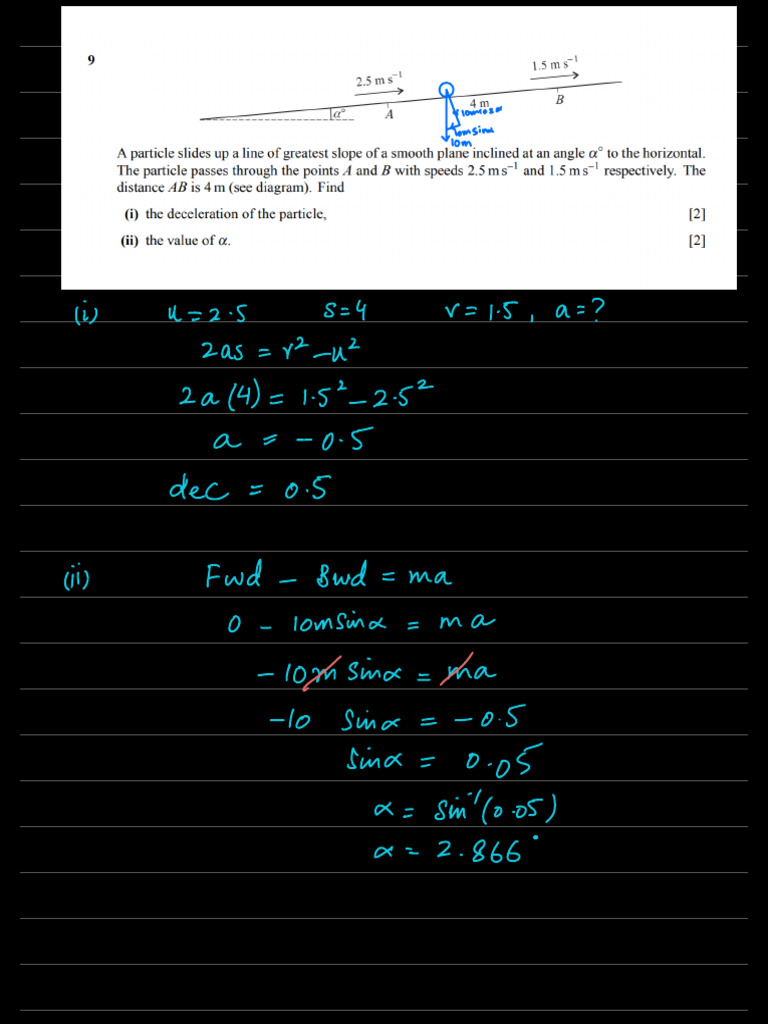 9
2.5 m s⁻¹
1.5 m s⁻¹
α°
A
4 m
B
10m sinα
10m
A particle slides up a line of greatest slope of a smooth plane inclined at an angle α° to the horizontal.
The particle passes through the points A and B with speeds 2.5 m s⁻¹ and 1.5 m s⁻¹ respectively. The
distance AB is 4 m (see diagram). Find
(i) the deceleration of the particle, [2]
(ii) the value of α. [2]
(i) u = 2.5 s = 4 v = 1.5, a = ?
2as = v² – u²
2a(4) = 1.5² – 2.5²
a = – 0.5
dec = 0.5
(ii) Fwd – Bwd = ma
0 – 10m sinα = ma
– 10m sinα = ma
–10 sinα = – 0.5
sinα = 0.05
α = sin⁻¹(0.05)
α = 2.866°